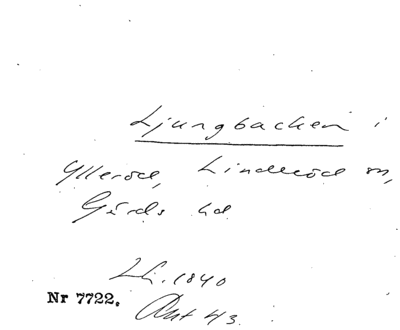 Ljungbacken i
Ylleröd, Linderöd sn,
Gärds hd
Lh. 1840
Nr 7722. Ant 43.